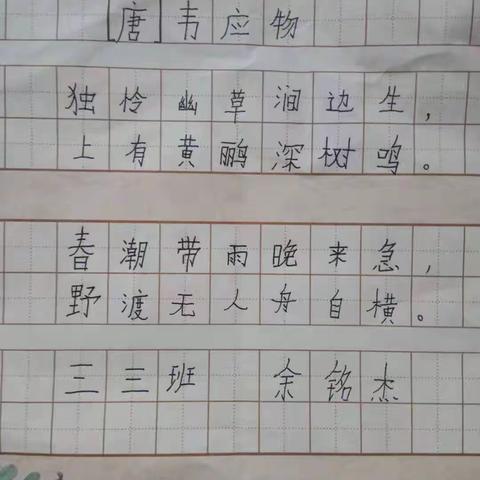 [唐]韦应物
独怜幽草涧边生，
上有黄鹂深树鸣。
春潮带雨晚来急，
野渡无人舟自横。
三三班 余铭杰